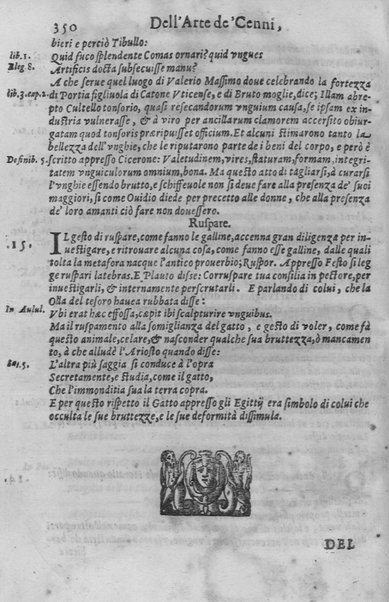 350 Dell'Arte de'Cenni,
bieri e perciò Tibullo:
lib. 1. Quid fuco splendente Comas ornari? quid vngues
Eleg 8. Artificis docta subsecuisse manu?
A che serue quel luogo di Valerio Massimo doue celebrando la fortezza
lib. 3. cap. 2. di Portia figliuola di Catone Vticense, e di Bruto moglie, dice; Illam abre-
pto Cultello tonsorio, quasi resecandorum vnguium causa, se ipsam ex in
dustria vulnerasse, & à viro per ancillarum clamorem accersito obiur-
gatam quod tonsoris præripuisset officium. Et alcuni stimarono tanto la
bellezza dell'vnghie, che le riputarono parte de i beni del corpo, e però è
Definib. 5. scritto appresso Cicerone: Valetudinem, vires, staturam, formam, integrita-
tem vnguiculorum omnium, bona. Ma questo atto di tagliarsi, ò curarsi
l'vnghie essendo brutto, e schiffeuole non si deue fare alla presenza de' suoi
maggiori, si come Ouidio diede per precetto alle donne, che alla presenza
de' loro amanti ciò fare non douessero.
Ruspare.
15. IL gesto di ruspare, come fanno le galline, accenna gran diligenza per in-
uestigare, e ritrouare alcuna cosa, come fanno esse galline, dalle quali
tolta la metafora nacque l'antico prouerbio; Ruspor. Appresso Festo si leg
ge ruspari latebras. E Plauto disse: Corruspare tua consilia in pectore, per
inuestigarli, & internamente perscrutarli. E parlando di colui, che la
Olla del tesoro hauea rubbata disse:
In Aulul. Vbi erat hæc effossa, cæpit ibi scalpturire vnguibus.
Ma il ruspamento alla somiglianza del gatto, e gesto di voler, come fà
questo animale, celare, & nasconder qualche sua bruttezza, ò mancamen
to, à che alludè l'Ariosto quando disse:
Sat. 5. L'altra più saggia si conduce à l'opra
Secretamente, e studia, come il gatto,
Che l'immonditia sua la terra copra.
E per questo rispetto il Gatto appresso gli Egittij era simbolo di colui che
occulta le sue bruttezze, e le sue deformità dissimula.
DEL